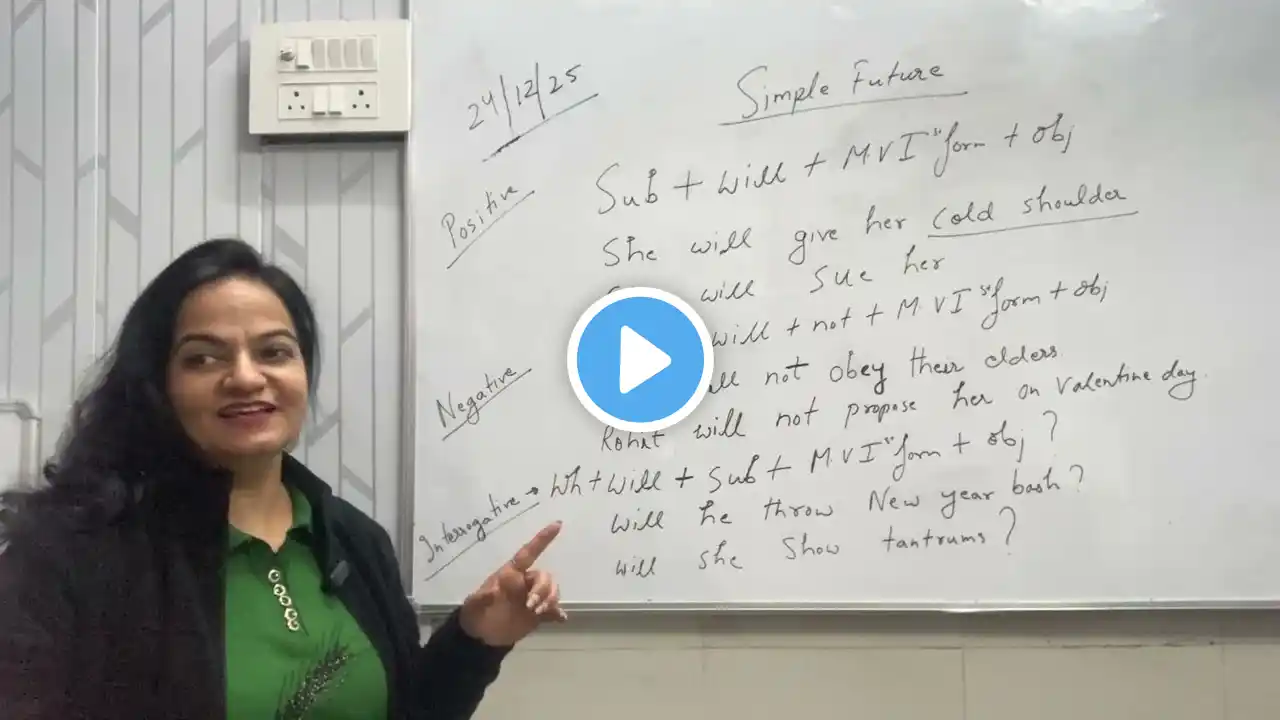 24/12/25
Simple Future
Positive
Sub + will + M.V I" form + obj
She will give her cold shoulder
will sue her
will + not + M.V I" form + obj
Negative
not obey their elders.
Rohit will not propose her on Valentine day.
Interrogative → Wh + will + sub + M.V I" form + obj ?
will he throw New year bash ?
will she show tantrums ?